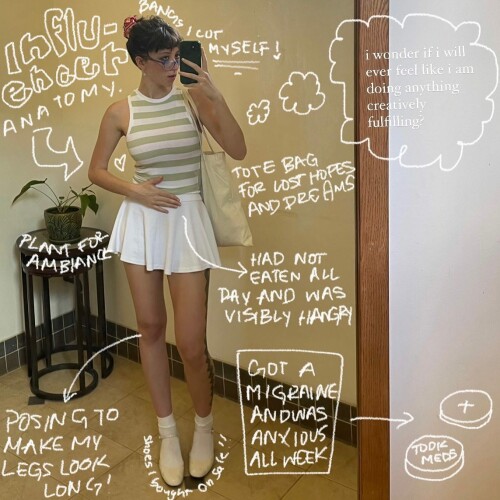 INFLU-
ENCER
ANATOMY.
BANGS I CUT
MYSELF!
i wonder if i will
ever feel like i am
doing anything
creatively
fulfilling?
TOTE BAG
FOR LOST HOPES
AND DREAMS
PLANT FOR
AMBIANCE
HAD NOT
EATEN ALL
DAY AND WAS
VISIBLY HANGRY
POSING TO
MAKE MY
LEGS LOOK
LONG!
Shoes I bought on Sale!!
GOT A
MIGRAINE
AND WAS
ANXIOUS
ALL WEEK
+
TOOK
MEDS